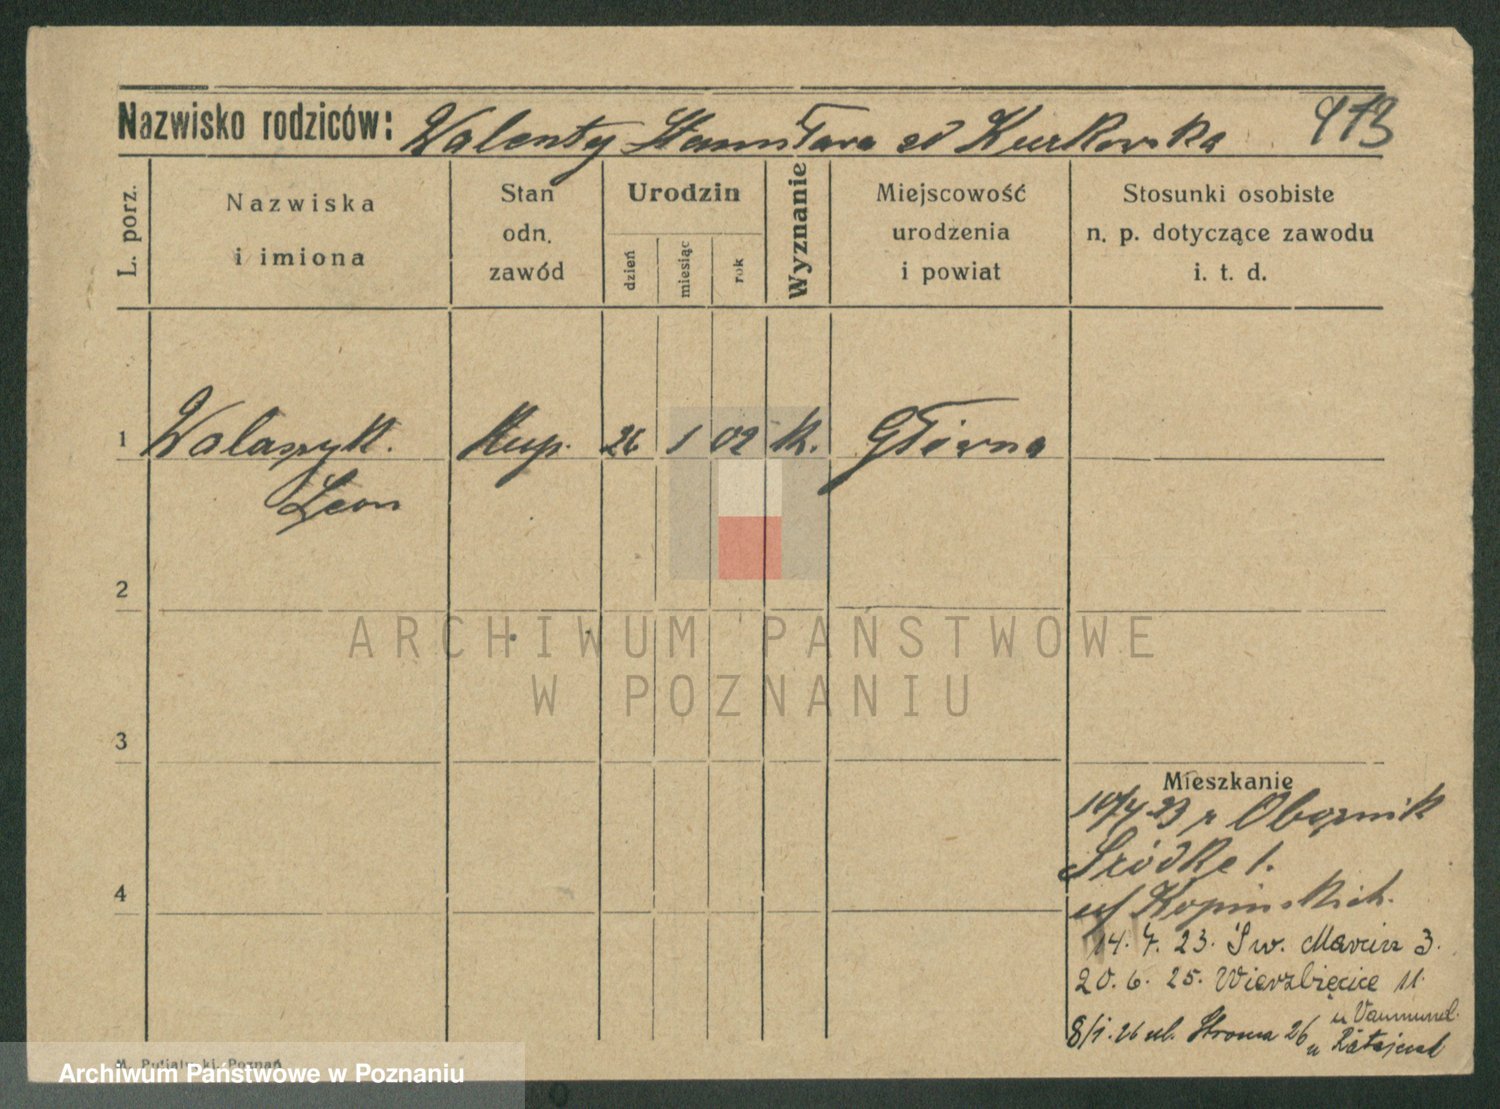 Nazwisko rodziców: Walenty Stanisława od Kurkowska 913
L. porz.
Nazwiska
i imiona
Stan
odn.
zawód
Urodzin
dzień
miesiąc
rok
Wyznanie
Miejscowość
urodzenia
i powiat
Stosunki osobiste
n. p. dotyczące zawodu
i. t. d.
1 Walaszyk. Kup. 26 1 02 K. Główna
Leon
2
ARCHIWUM PAŃSTWOWE
W POZNANIU
3
Mieszkanie
10/4 23 Obornik
Śródka 1.
14. 7. 23. Św. Marcin 3.
20. 6. 25. Wierzbięcice 11
8/1. 26 ul. Stroma 26
u Ratajczak
4
Poznań
Archiwum Państwowe w Poznaniu